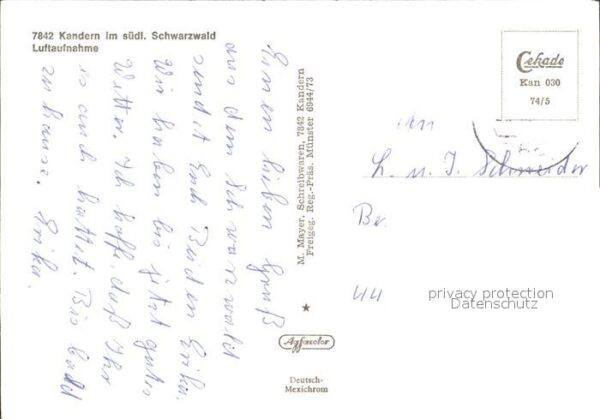 7842 Kandern im südl. Schwarzwald
Luftaufnahme
Einen lieben Gruß
aus dem Schwarzwald
sendet Euch Beiden Erika.
Wir haben bis jetzt gutes
Wetter. Ich hoffe, daß Ihr
es auch hattet. Bis bald
zu hause. Erika.
M. Mayer, Schreibwaren, 7842 Kandern
Freigeg. Reg.-Präs. Münster 6944/73
Agfacolor
Deutsch-
Mexichrom
Cekade
Kan 030
74/5
An
L. u. I. Schneider
Be
44
privacy protection
Datenschutz